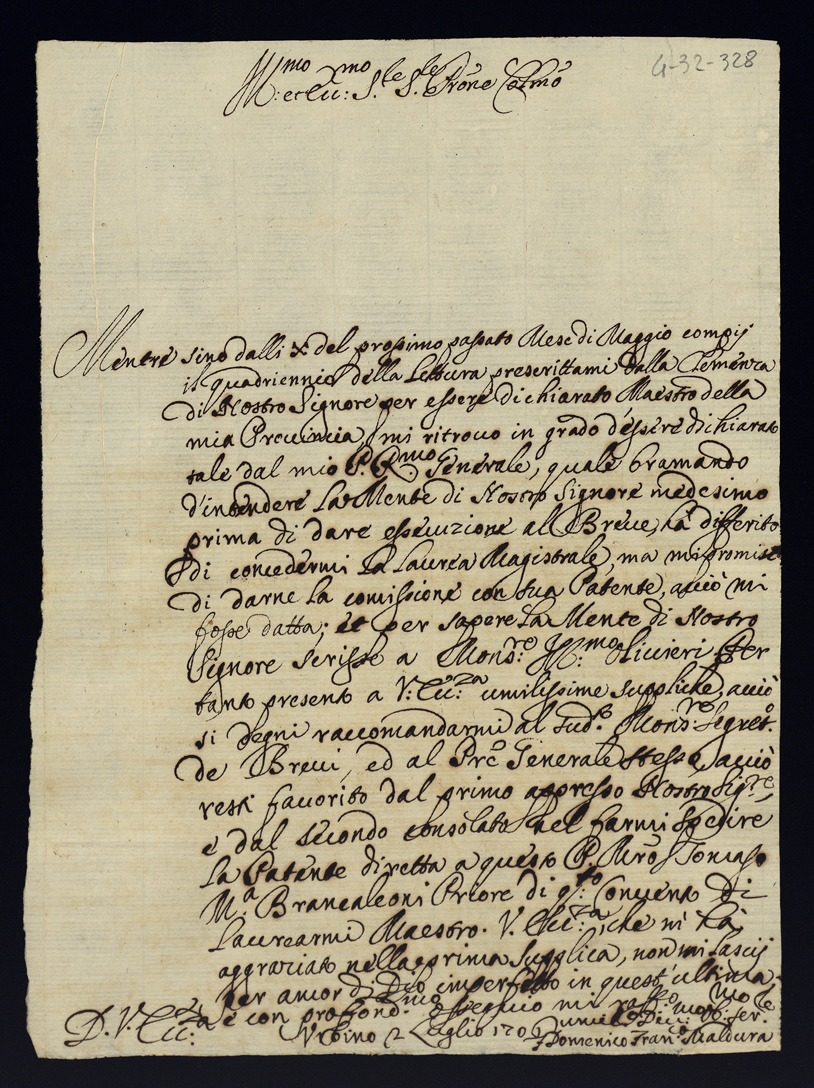 4-32-328
Ill:mo et Ecc:mo S.re S.re Prōne Colmō
Mentre sino dalli X del prossimo passato Mese di Maggio compij
il quadriennio della Lettura prescrittami dalla Clemenza
di Nostro Signore per essere dichiarato Maestro della
mia Provincia, mi ritrovo in grado d'essere dichiarato
tale dal mio P. R:mo Generale, quale bramando
d'intendere la Mente di Nostro Signore medesimo
prima di dare essecuzione al Breve, hà differito
di concedermi la Laurea Magistrale, ma mi promise
di darne la comissione con sua Patente, acciò mi
fosse datta; et per sapere la Mente di Nostro
Signore scrisse a Mons:re Ill:mo Olivieri Per
tanto presento a V: Ecc:za umilissime suppliche, acciò
si degni raccomandarmi al sud.o Mons:re Segret.o
de Brevi, ed al Prē Generale stesso, acciò
resti favorito dal primo appresso Nostro Sig:re,
e dal secondo consolato nel farmi spedire
la Patente diretta a questo P. Mrō Tomaso
M.a Brancaleoni Priore di q:sto Convento di
Laurearmi Maestro. V. Ecc:za, che mi hà
aggraziato nella prima supplica, non mi lascij
per amor di Dio imperfetto in quest'ultima,
e con profond:mo ossequio mi raffermo
D. V. Ecc:za
Urbino 2 Luglio 170
Umil:mo Dev:mo Obb: ser.
Domenico Fran.o Maldura